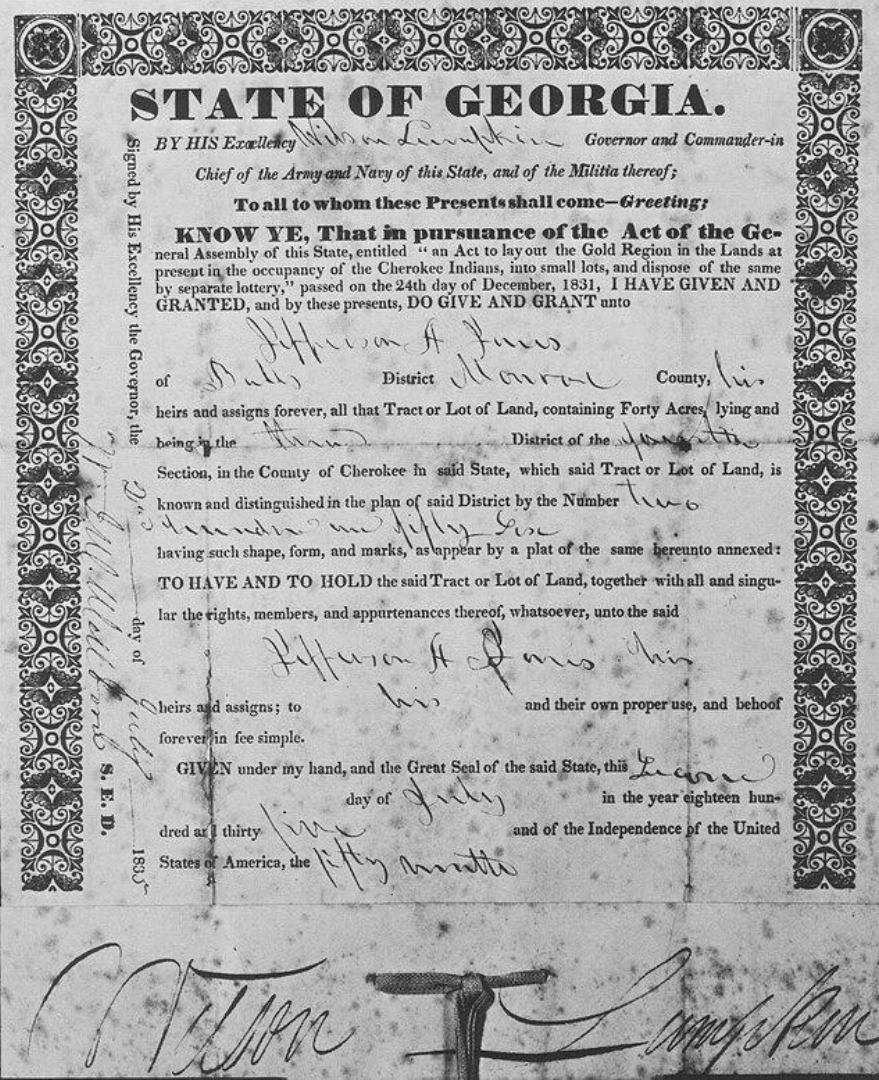 STATE OF GEORGIA.
BY HIS Excellency Wilson Lumpkin Governor and Commander-in
Chief of the Army and Navy of this State, and of the Militia thereof;
To all to whom these Presents shall come—Greeting;
KNOW YE, That in pursuance of the Act of the Ge-
neral Assembly of this State, entitled “ an Act to lay out the Gold Region in the Lands at
present in the occupancy of the Cherokee Indians, into small lots, and dispose of the same
by separate lottery,” passed on the 24th day of December, 1831, I HAVE GIVEN AND
GRANTED, and by these presents, DO GIVE AND GRANT unto
Jefferson A Jones
of District Monroe County, his
heirs and assigns forever, all that Tract or Lot of Land, containing Forty Acres, lying and
being in the third District of the fourth
Section, in the County of Cherokee in said State, which said Tract or Lot of Land, is
known and distinguished in the plan of said District by the Number two
hundred and fifty six
having such shape, form, and marks, as appear by a plat of the same hereunto annexed:
TO HAVE AND TO HOLD the said Tract or Lot of Land, together with all and singu-
lar the rights, members, and appurtenances thereof, whatsoever, unto the said
Jefferson A Jones his
heirs and assigns; to his and their own proper use, and behoof
forever in fee simple.
GIVEN under my hand, and the Great Seal of the said State, this Second
day of July in the year eighteen hun-
dred and thirty five and of the Independence of the United
States of America, the fifty ninth
Signed by His Excellency the Governor, the 2d day of July 1835
S. E. D.
Wilson Lumpkin